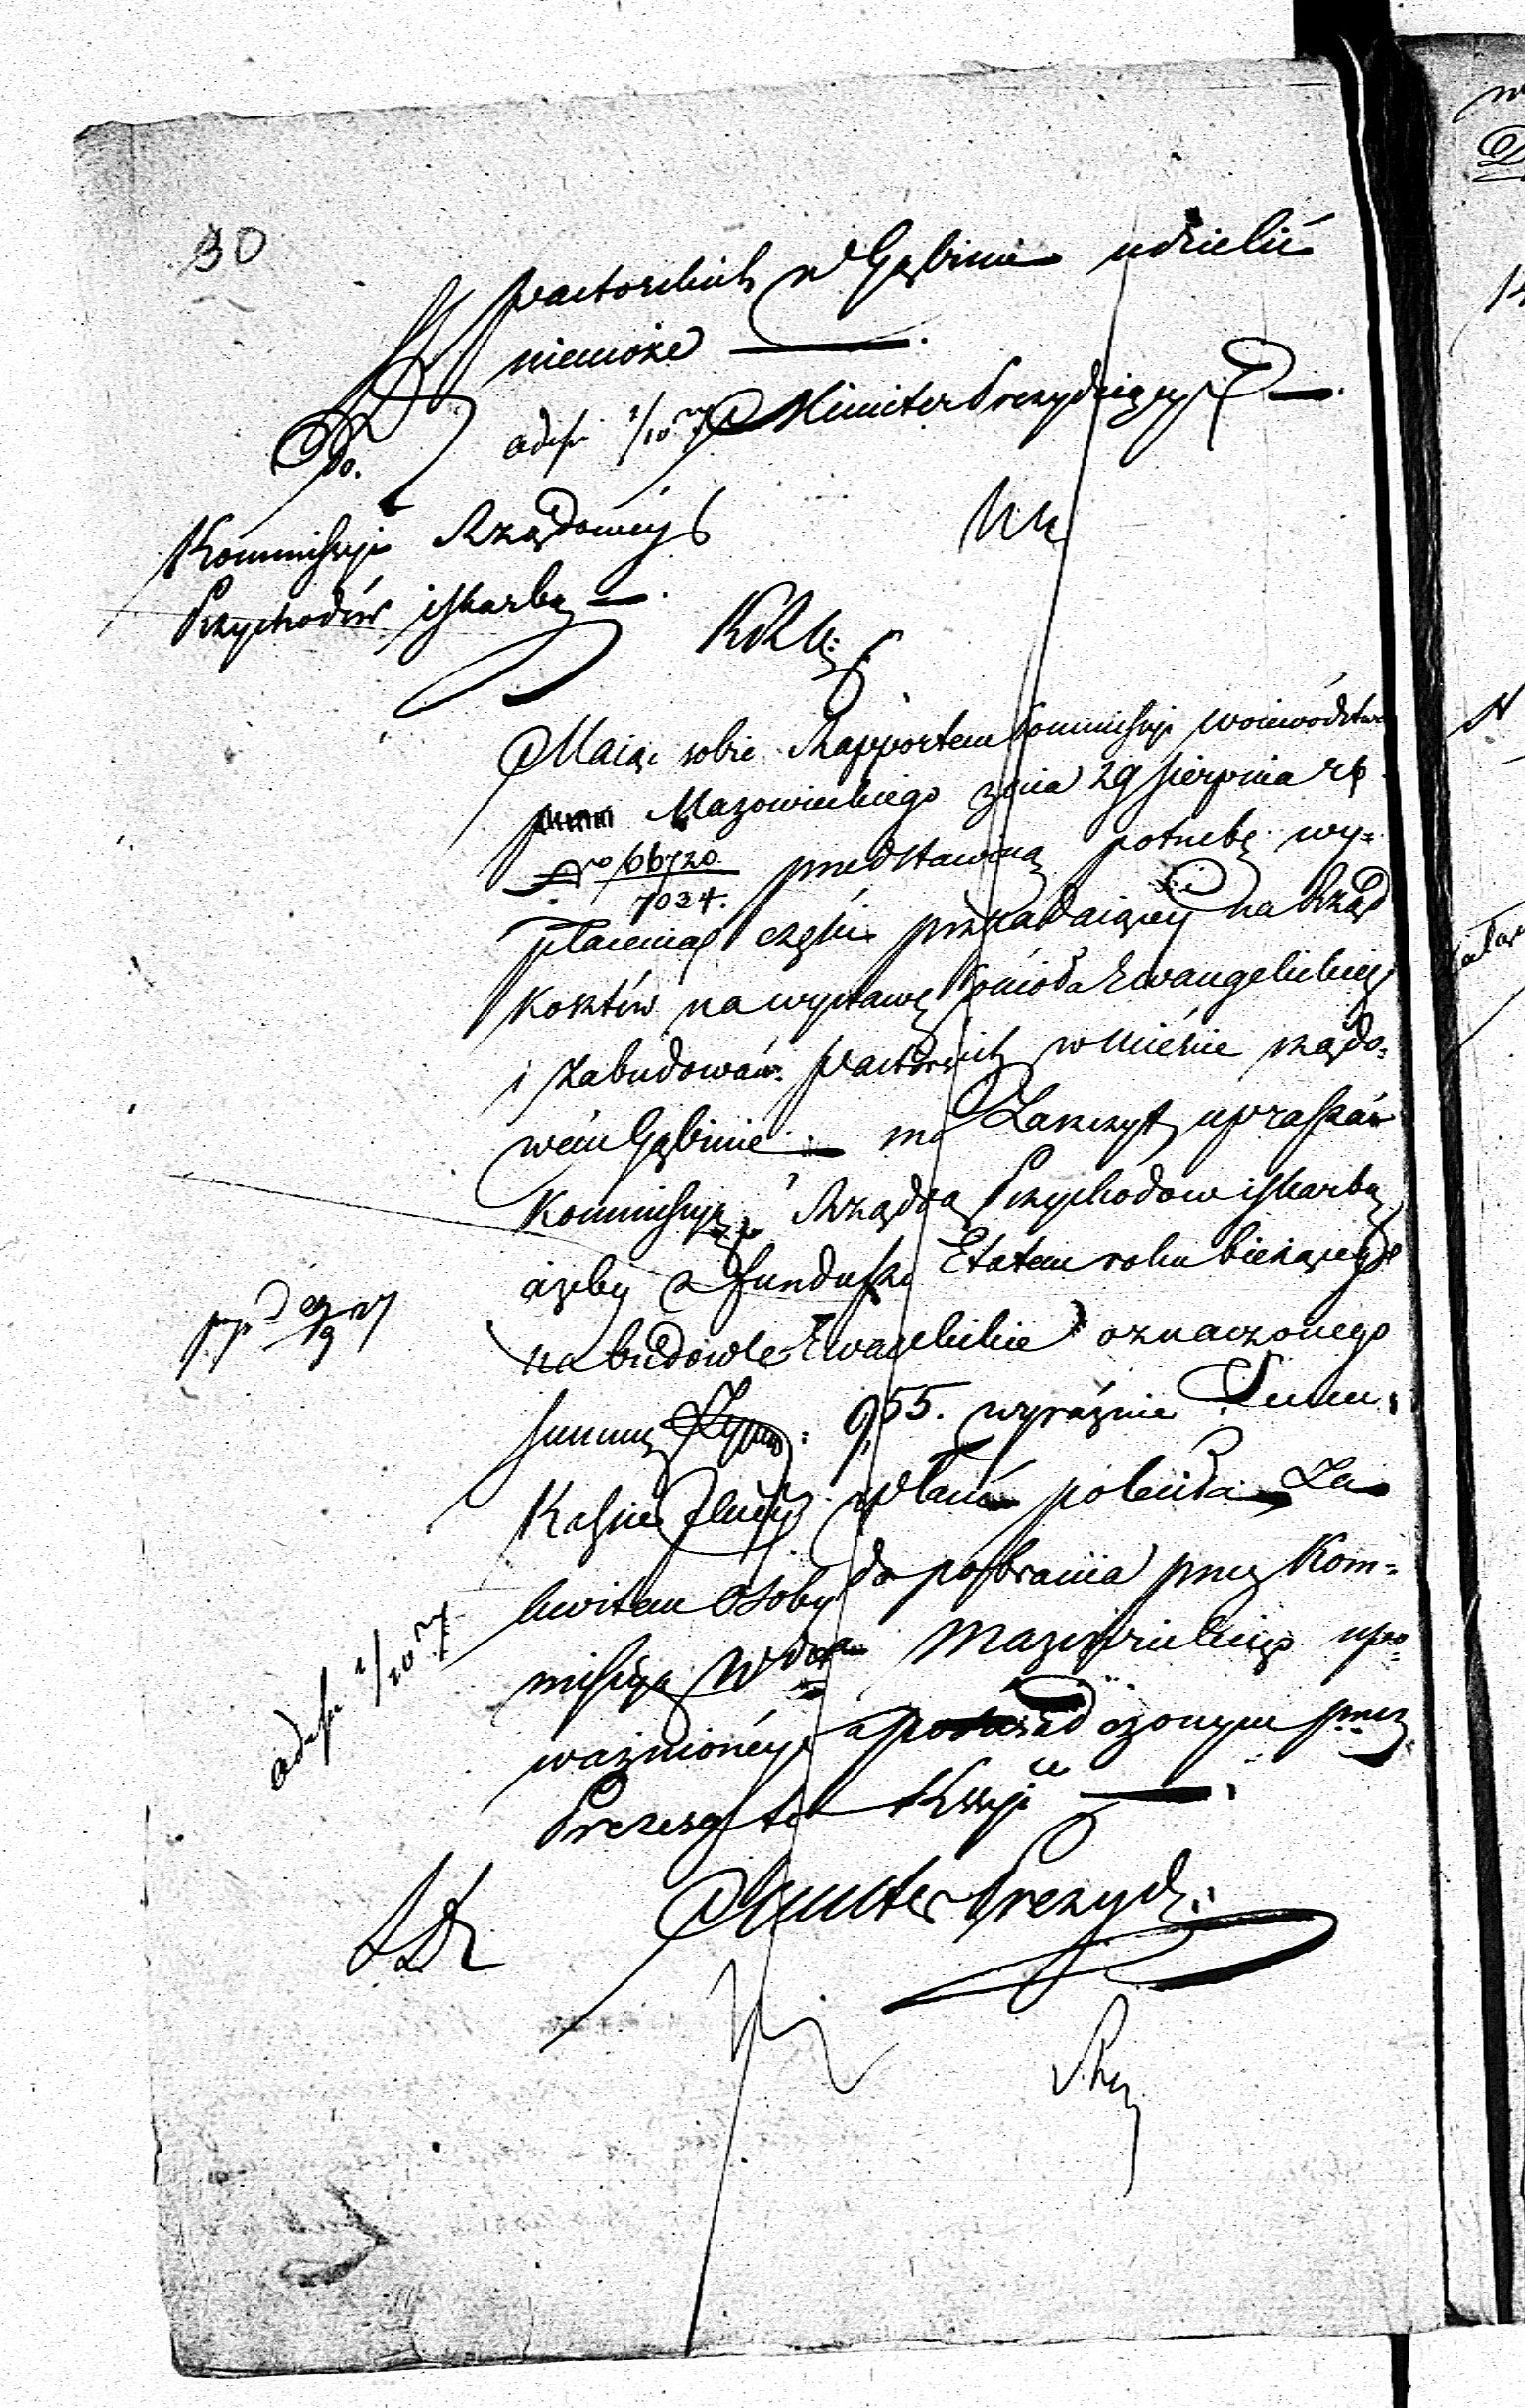 30
pastorskich w Gąbinie udzielić
niemoże
adesp 1/10 Minister Prezydujący
Do
Kommissyi Rządowéy
Przychodów i Skarbu
KRSW
Maiąc sobie Rapportem Kommissyi Woiewództwa
Mazowieckiego z dnia 29 Sierpnia rb
No 66720
7034.
przedstawioną potrzebę wy-
płacenia części przypadaiącey na Rząd
Kosztów na wystawę kościoła Ewangelickiego
i zabudowań pastorskich w mieście rządo-
wém Gąbinie ma Zaszczyt upraszać
Kommissyą Rządową Przychodów i Skarbu
ażeby z funduszu Etatem roku bieżącego
na budowle Ewangelickie oznaczonego
summę 955. wyraźnie
Kassie wypłacić poleciła Za
kwitem Osoby do pobrania przez Kom-
missyą Wdztwa Mazowieckiego upo-
ważnionéy a poświadczonym przez
Prezesa téy Kssyi
Minister Prezyd:
adesp 1/10